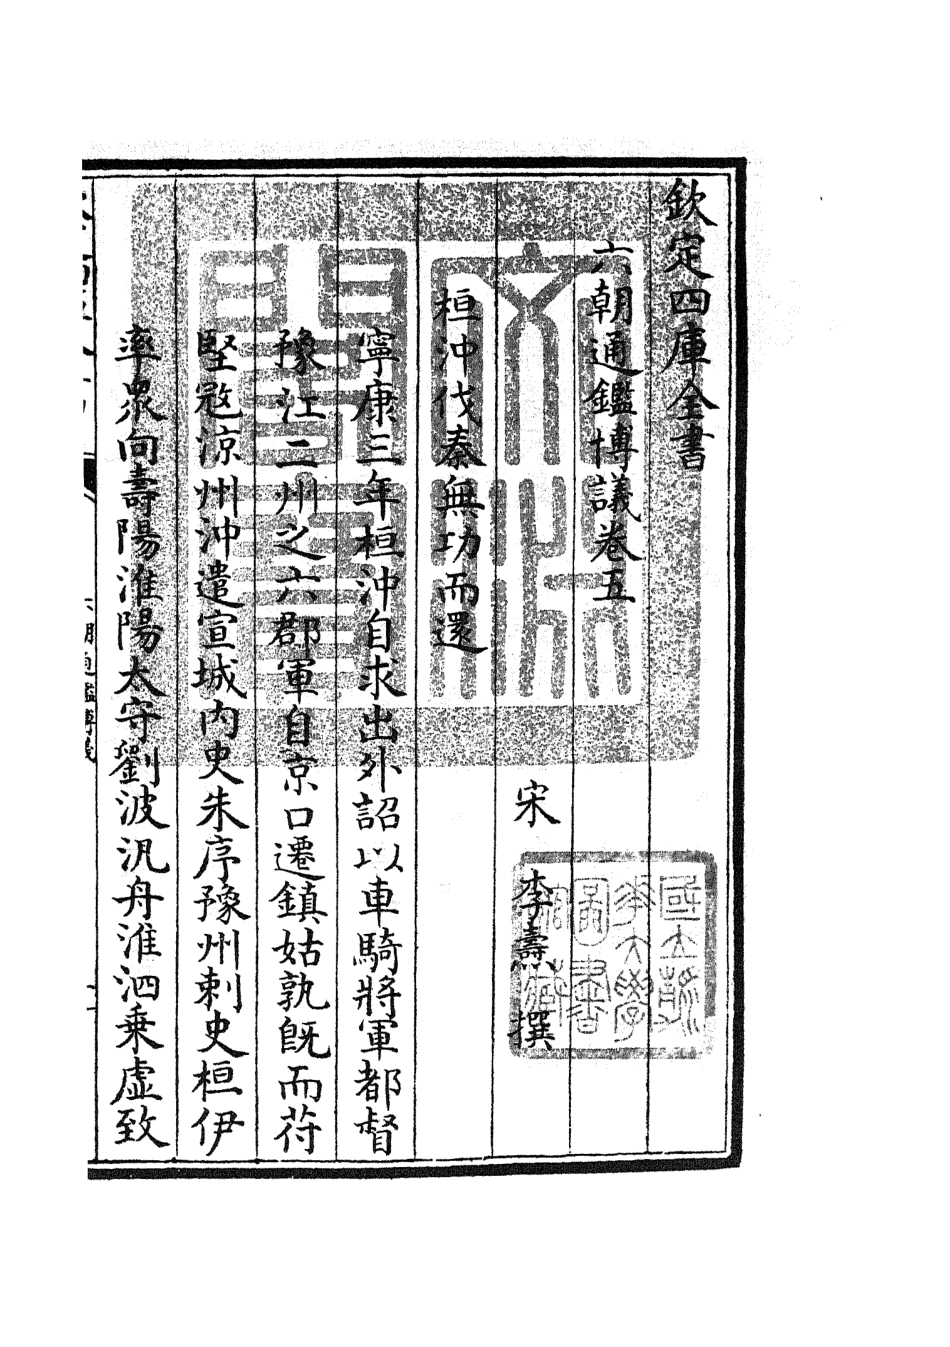 欽定四庫全書
六朝通鑑博議卷五
宋 李燾 撰
桓沖伐秦無功而還
寧康三年桓沖自求出外詔以車騎將軍都督
豫江二州之六郡軍自京口遷鎮姑孰旣而苻
堅敗涼州沖遣宣城内史朱序豫州刺史桓伊
率衆向壽陽淮陽太守劉波汎舟淮泗乗虛致
六朝通鑑博議